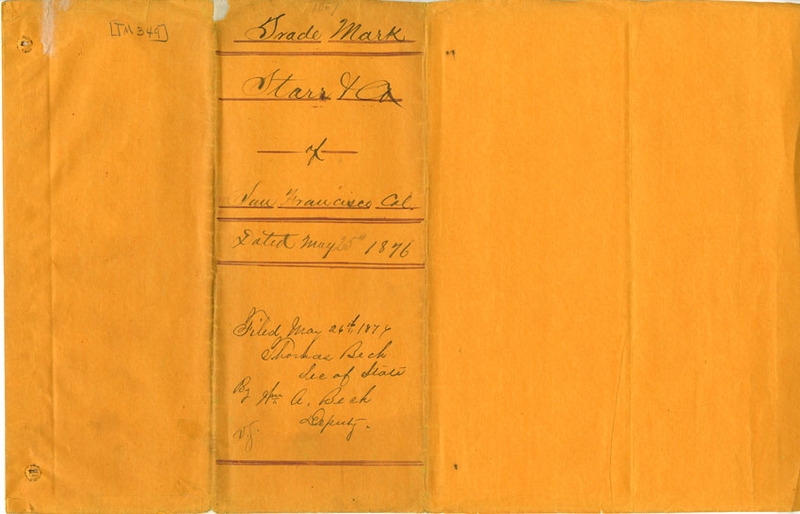 [TM 349]
Trade Mark
Starr & Co
of
San Francisco Cal.
Dated May 25th 1876
Filed, May 26th, 1876
Thomas Beck
Sec of State
By Wm A. Beck
Deputy.